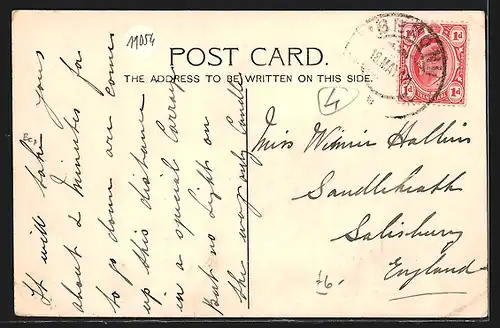 11054
POST CARD.
THE ADDRESS TO BE WRITTEN ON THIS SIDE.
4
1d 1d
1d 1d
It will take you
about 2 Minutes for
to go down are comes
up this distance
in a special Carriage
But no Lights on
the way only Candle
Miss Winnie Hallins
Sandleheath
Salisbury
England
f6-